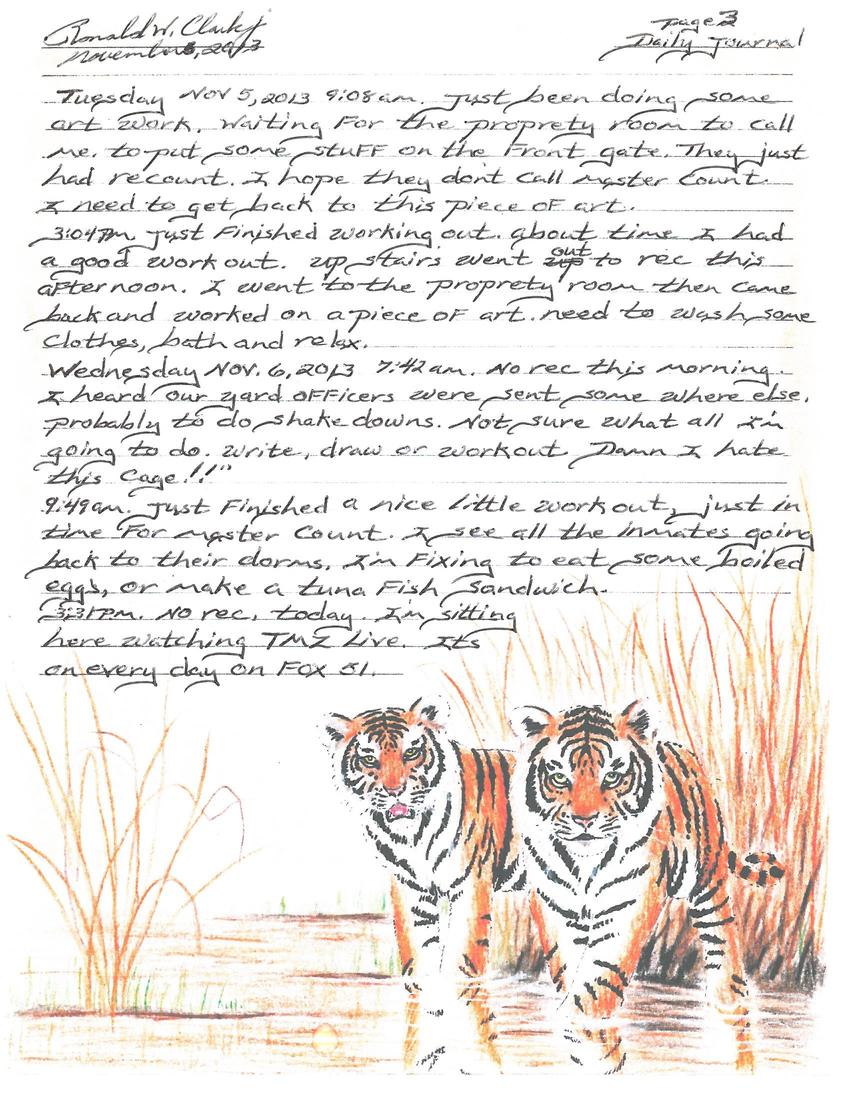 Ronald W. Clark Jr
November 8, 2013
page 3
Daily Journal
Tuesday Nov 5, 2013 9:08am. Just been doing some
art work. Waiting For the proprety room to call
me. to put some stuFF on the Front gate. They just
had recount. I hope they dont call master Count.
I need to get back to this piece oF art.
3:04pm. Just Finished working out. about time I had
a good work out. up stairs went out to rec this
aFternoon. I went to the proprety room then came
back and worked on a piece oF art. need to wash some
Clothes, bath and relax.
Wednesday Nov. 6, 2013 7:42am. No rec this morning.
I heard our yard oFFicers were sent some where else.
probably to do shake downs. Not sure what all I'm
going to do. write, draw or workout. Damn I hate
this Cage!!"
9:49am. Just Finished a nice little work out, just in
time For master Count. I see all the inmates going
back to their dorms, I'm Fixing to eat some boiled
eggs, or make a tuna Fish sandwich.
3:31pm. No rec, today. I'm sitting
here watching TMZ Live. Its
on every day on FOX 51.